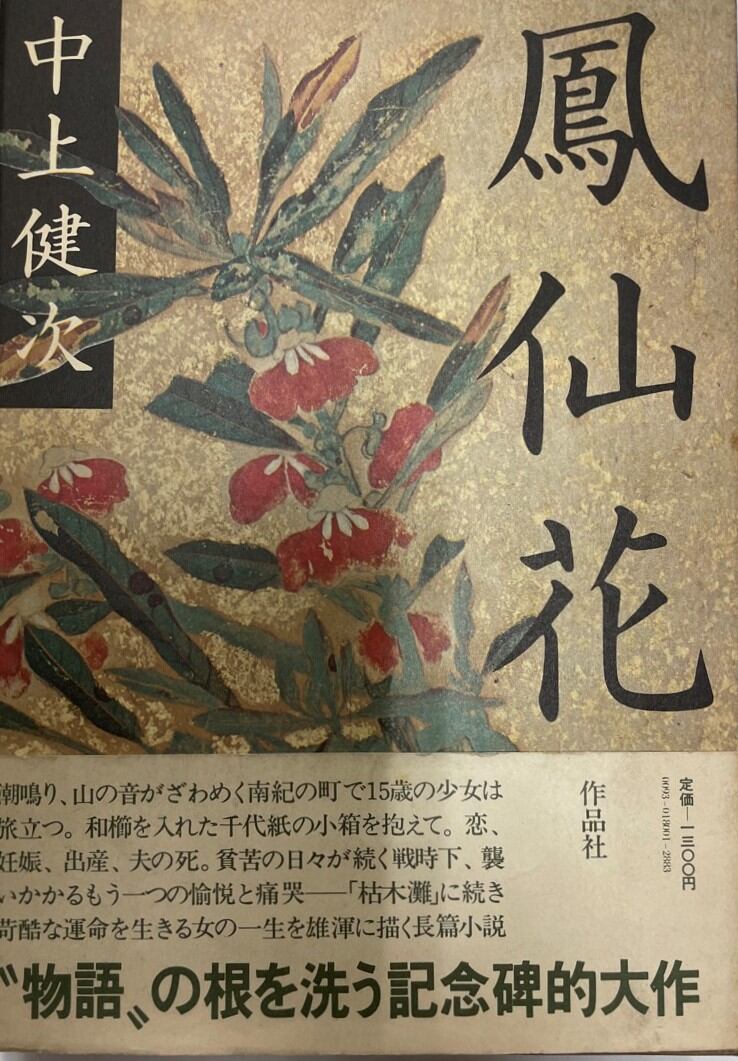 鳳仙花
中上健次
定価―一三〇〇円
0093-019001-2883
作品社
潮鳴り、山の音がざわめく南紀の町で15歳の少女は
旅立つ。和櫛を入れた千代紙の小箱を抱えて。恋、
妊娠、出産、夫の死。貧苦の日々が続く戦時下、襲
いかかるもう一つの愉悦と痛哭――「枯木灘」に続き
苛酷な運命を生きる女の一生を雄渾に描く長篇小説
〝物語〟の根を洗う記念碑的大作